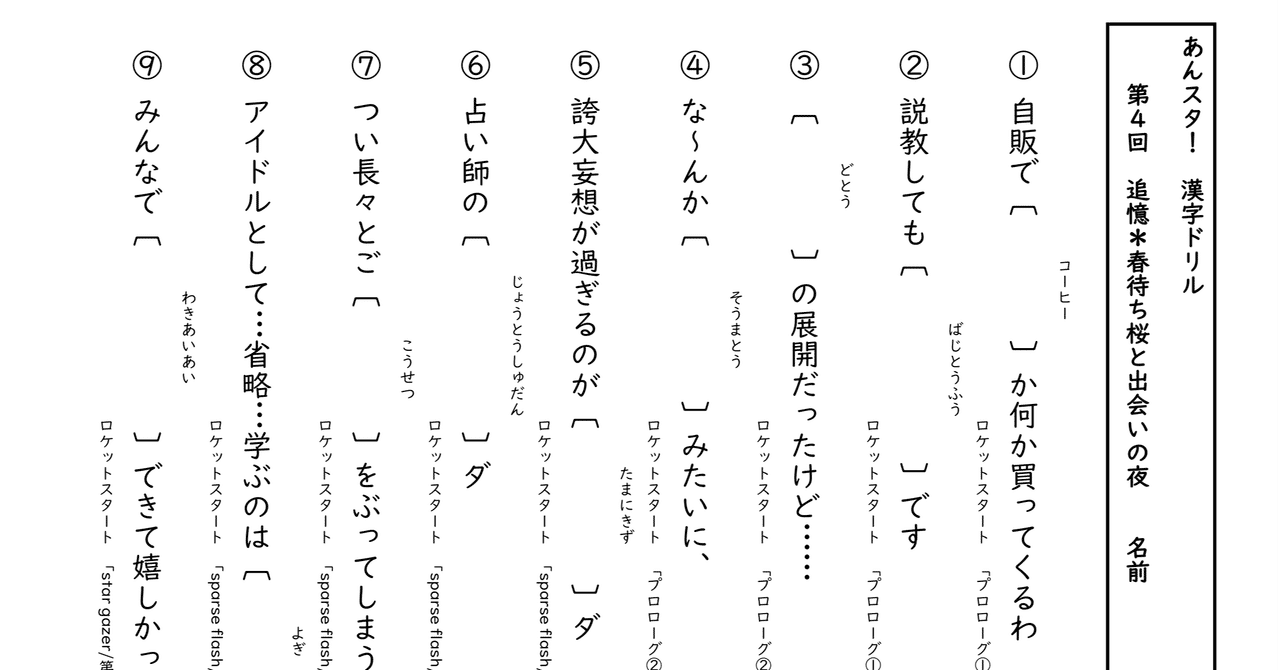 あんスタ！　漢字ドリル
第４回　追憶＊春待ち桜と出会いの夜　　名前
コーヒー
① 自販で〔　　　〕か何か買ってくるわ
ロケットスタート「プロローグ①
ばじとうふう
② 説教しても〔　　　〕です
ロケットスタート「プロローグ①
どとう
③〔　　　〕の展開だったけど……
ロケットスタート「プロローグ②
そうまとう
④ な～んか〔　　　〕みたいに、
ロケットスタート「プロローグ②
たまにきず
⑤ 誇大妄想が過ぎるのが〔　　　〕ダ
ロケットスタート「sparse flash/
じょうとうしゅだん
⑥ 占い師の〔　　　〕ダ
ロケットスタート「sparse flash/
こうせつ
⑦ つい長々とご〔　　　〕をぶってしまう
ロケットスタート「sparse flash/
よぎ
⑧ アイドルとして…省略…学ぶのは〔
ロケットスタート「sparse flash/
わきあいあい
⑨ みんなで〔　　　〕できて嬉しかっ
ロケットスタート「star gazer/第